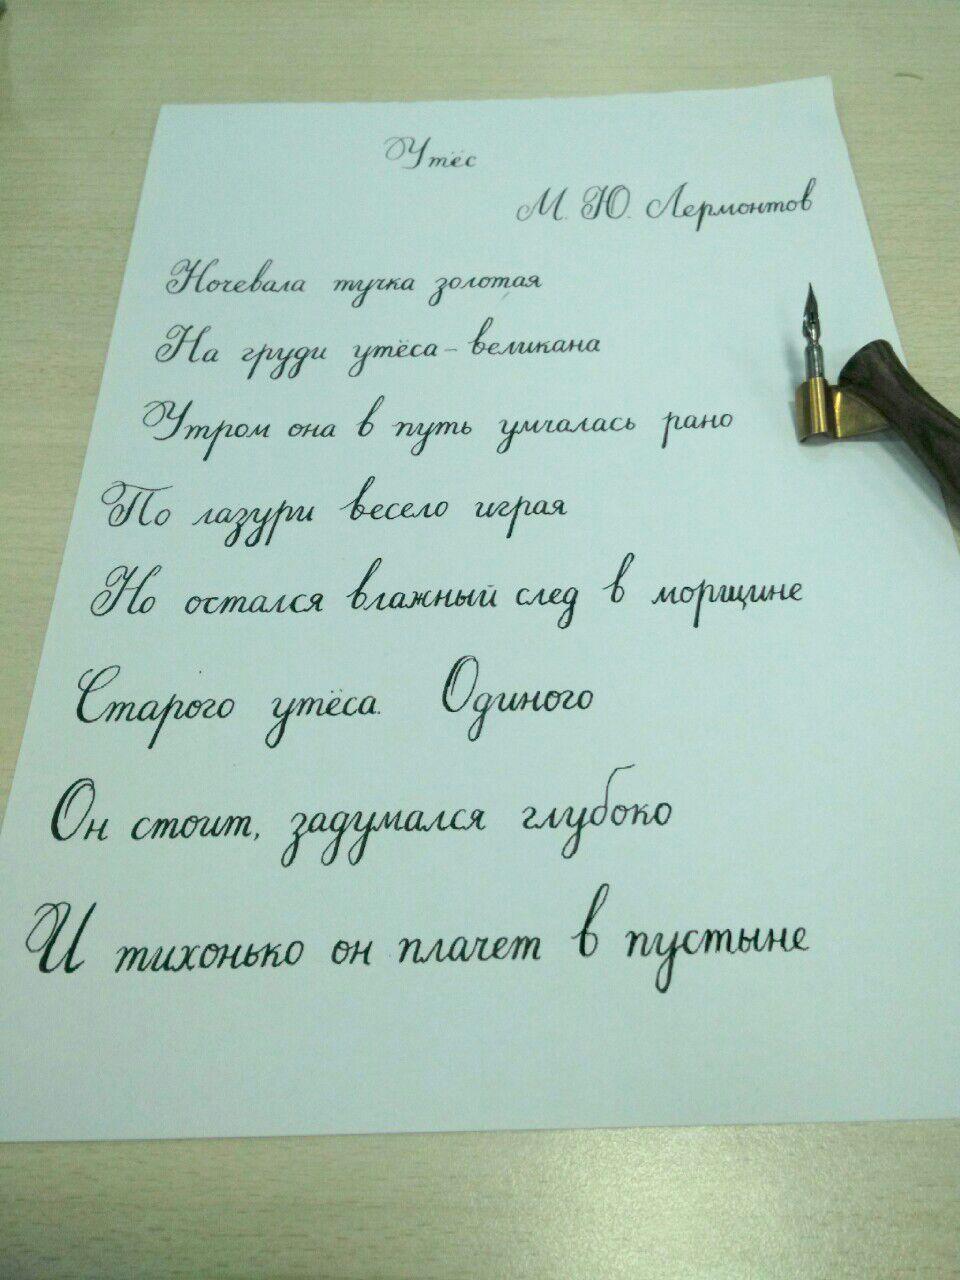 Утёс
М. Ю. Лермонтов
Ночевала тучка золотая
На груди утёса-великана
Утром она в путь умчалась рано
По лазури весело играя
Но остался влажный след в морщине
Старого утёса. Одиного
Он стоит, задумался глубоко
И тихонько он плачет в пустыне